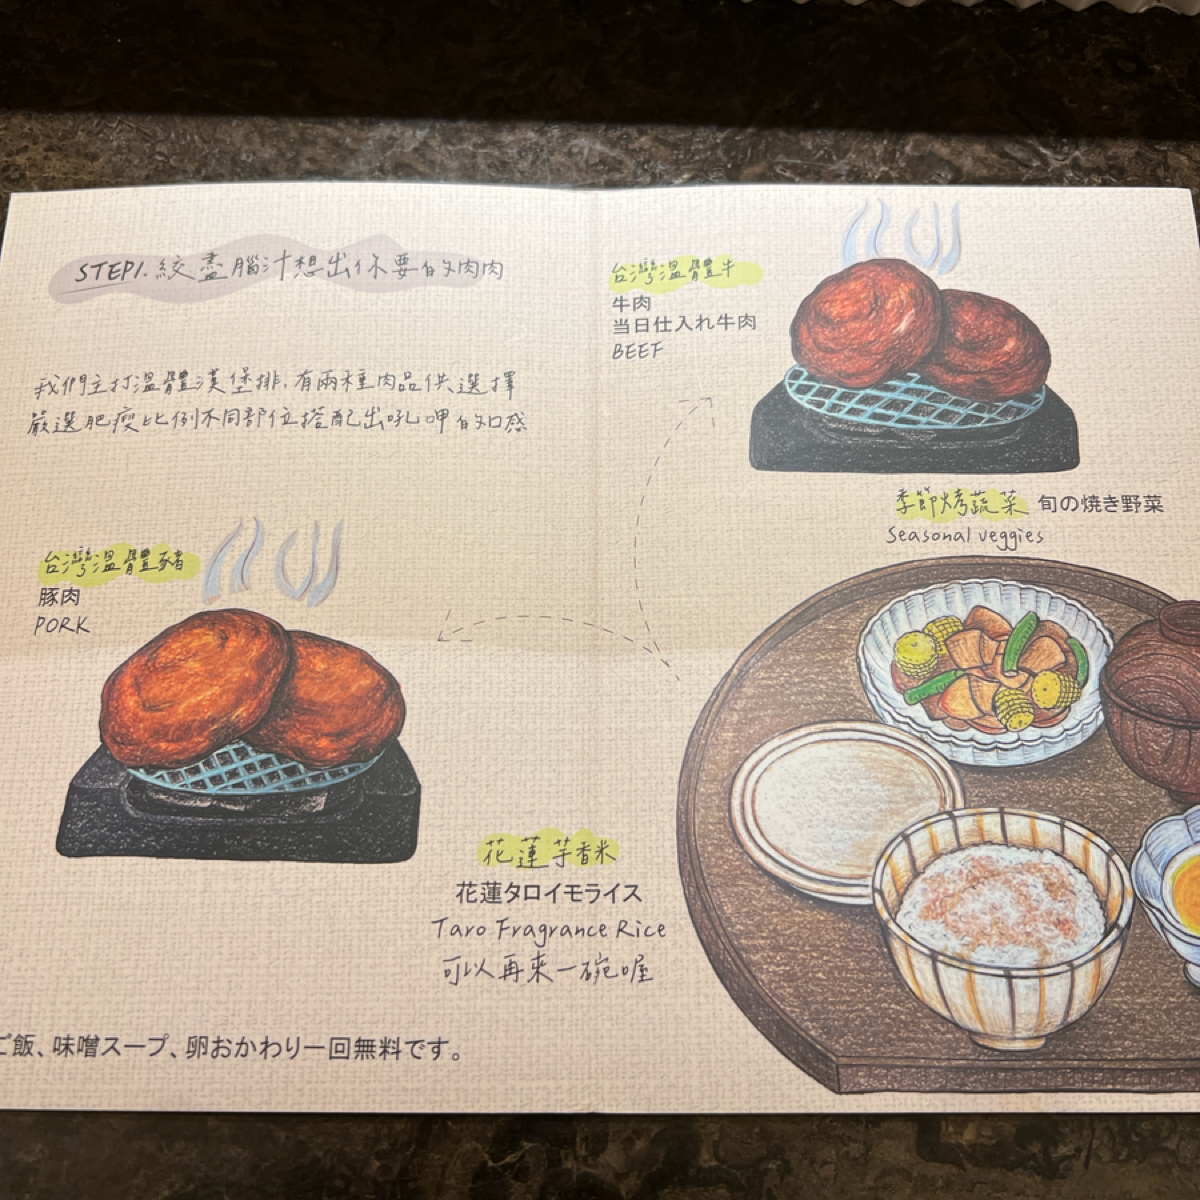 STEP1.絞盡腦汁想出你要的肉肉
我們主打溫體漢堡排,有兩種肉品供選擇
嚴選肥瘦比例不同部位搭配出吼呷的口感
台灣溫體牛
牛肉
当日仕入れ牛肉
BEEF
季節烤蔬菜 旬の焼き野菜
Seasonal veggies
台灣溫體豬
豚肉
PORK
花蓮芋香米
花蓮タロイモライス
Taro Fragrance Rice
可以再來一碗喔
ご飯、味噌スープ、卵おかわり一回無料です。